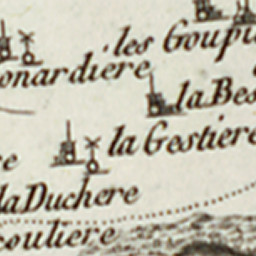 les Goupi
onardière
la Bes
la Gestière
re
la Duchere
couliere